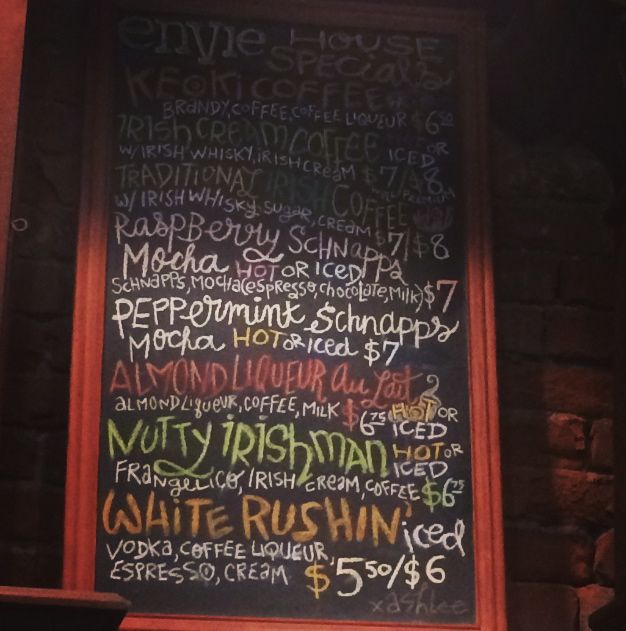 envie HOUSE
SPECIALS
KEOKI COFFEE
BRANDY, COFFEE, COFFEE LIQUEUR $6.50
IRISH CREAM COFFEE OR ICED
W/ IRISH WHISKY, IRISH CREAM $7/$8
TRADITIONAL IRISH COFFEE
W/ IRISH WHISKY, SUGAR, CREAM $7/$8
RASPBERRY SCHNAPPS
MOCHA HOT OR ICED!
SCHNAPPS, MOCHA (ESPRESSO, CHOCOLATE, MILK) $7
PEPPERMINT SCHNAPPS
MOCHA HOT OR ICED $7
ALMOND LIQUEUR au Lait
ALMOND LIQUEUR, COFFEE, MILK $6.75 HOT OR ICED
NUTTY IRISHMAN HOT OR ICED
FRANGELICO, IRISH CREAM, COFFEE $6.75
WHITE RUSHIN' iced
VODKA, COFFEE LIQUEUR,
ESPRESSO, CREAM $5.50/$6
xashlee